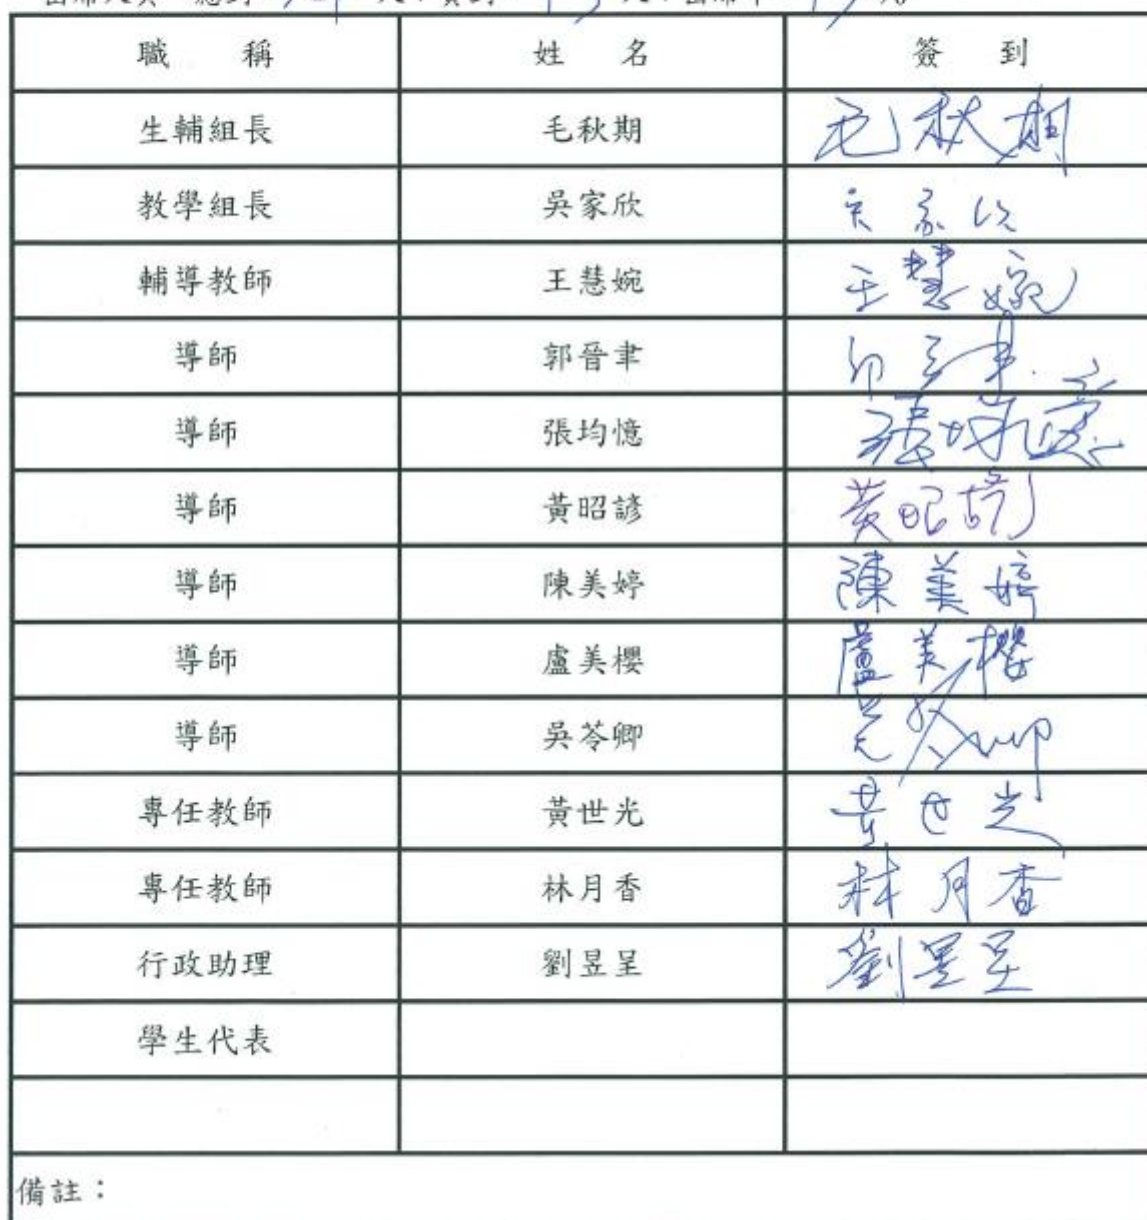 職 稱 姓 名 簽 到
生輔組長 毛秋期 毛秋期
教學組長 吳家欣 吳家欣
輔導教師 王慧婉 王慧婉
導師 郭晉聿 郭晉聿
導師 張均憶 張均憶
導師 黃昭諺 黃昭諺
導師 陳美婷 陳美婷
導師 盧美櫻 盧美櫻
導師 吳苓卿 吳苓卿
專任教師 黃世光 黃世光
專任教師 林月香 林月香
行政助理 劉昱呈 劉昱呈
學生代表
備註：